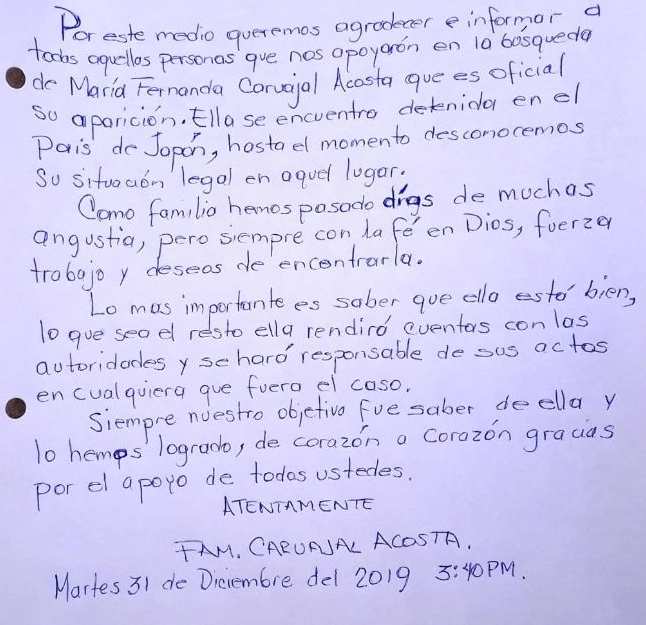 Por este medio queremos agradecer e informar a
todas aquellas personas que nos apoyarón en la búsqueda
de María Fernanda Carvajal Acosta que es oficial
su aparición. Ella se encuentra detenida en el
País de Japón, hasta el momento desconocemos
su situación legal en aquel lugar.
Como familia hemos pasado días de muchas
angustia, pero siempre con la fé en Dios, fuerza
trabajo y deseos de encontrarla.
Lo mas importante es saber que ella está bien,
lo que sea el resto ella rendirá cuentas con las
autoridades y se hará responsable de sus actos
en cualquiera que fuera el caso.
Siempre nuestro objetivo fue saber de ella y
lo hemos logrado, de corazón a corazón gracias
por el apoyo de todos ustedes.
ATENTAMENTE
FAM. CARVAJAL ACOSTA.
Martes 31 de Diciembre del 2019 3:40 PM.